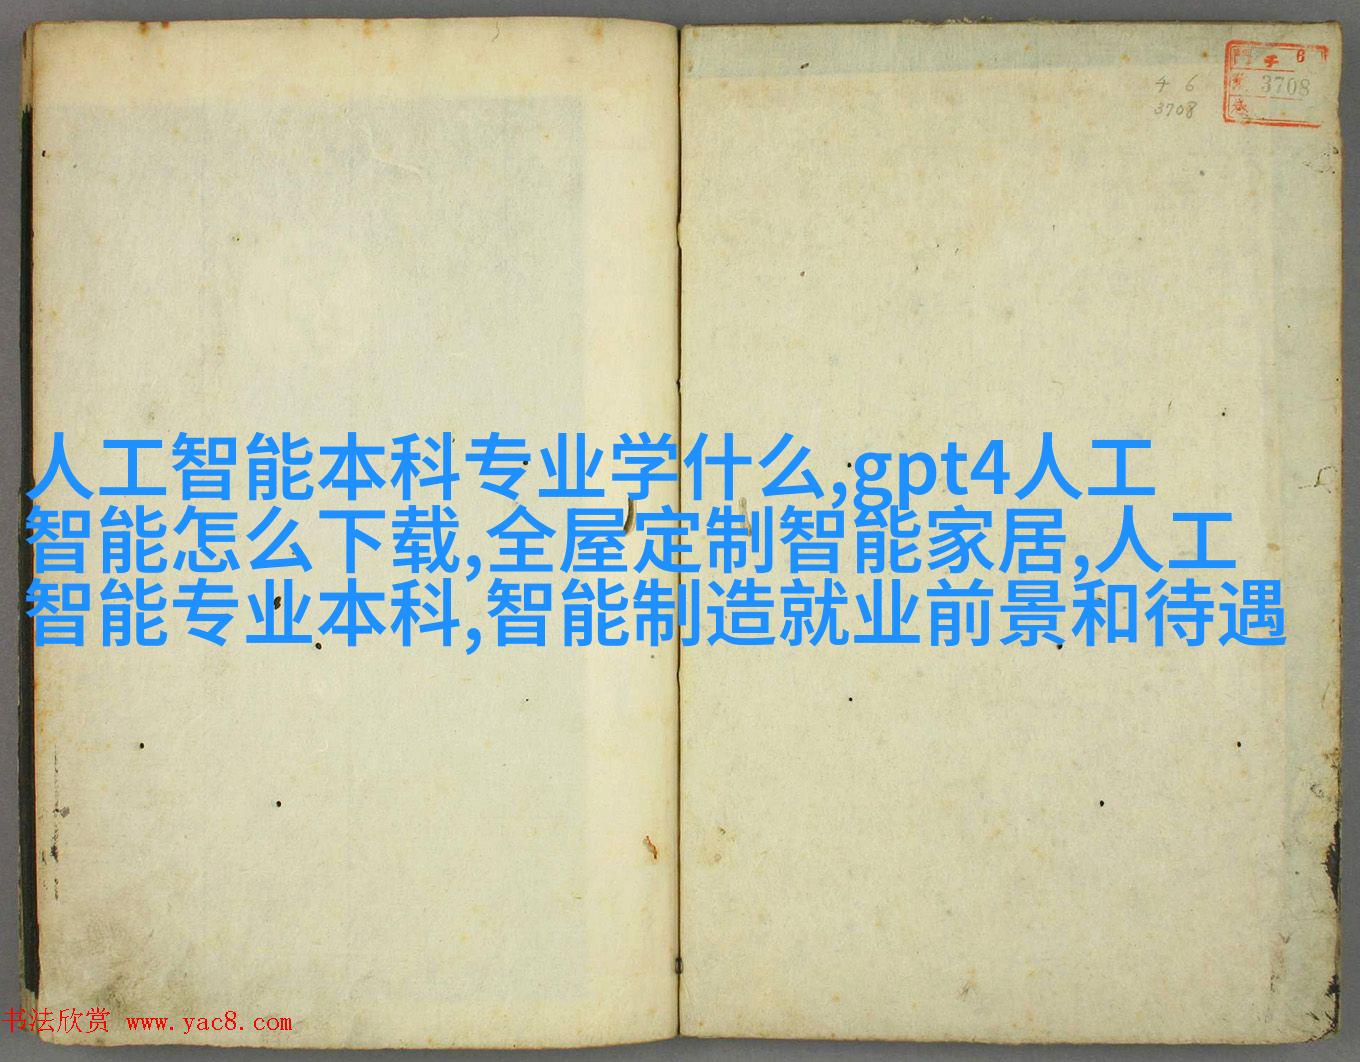 4 6
3708
6
3708
人工智能本科专业学什么,gpt4人工
智能怎么下载,全屋定制智能家居,人工
智能专业本科,智能制造就业前景和待遇
书法欣赏 www.yac8.com